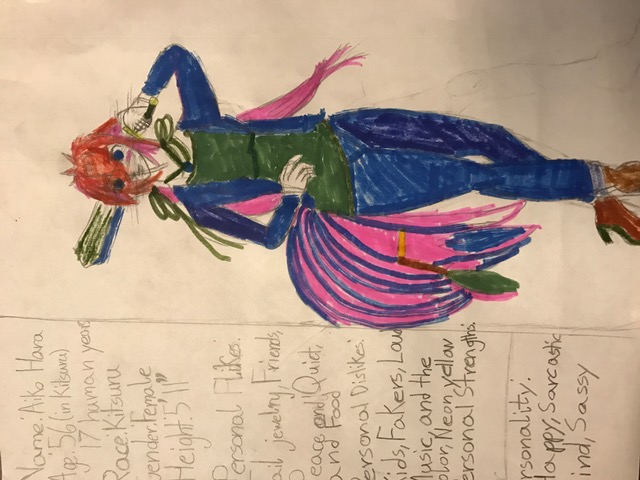 Name: Aiko Hara
Age: 56 (in Kitsuru)
17 human years
Race: Kitsuru
Gender: Female
Height: 5'11"
Personal Likes:
Tail jewelry, Friends,
Peace and Quiet,
and Food
Personal Dislikes:
Kids, Fakers, Loud
Music, and the
Color, Neon yellow
Personal Strengths:
Personality:
Happy, Sarcastic
Kind, Sassy